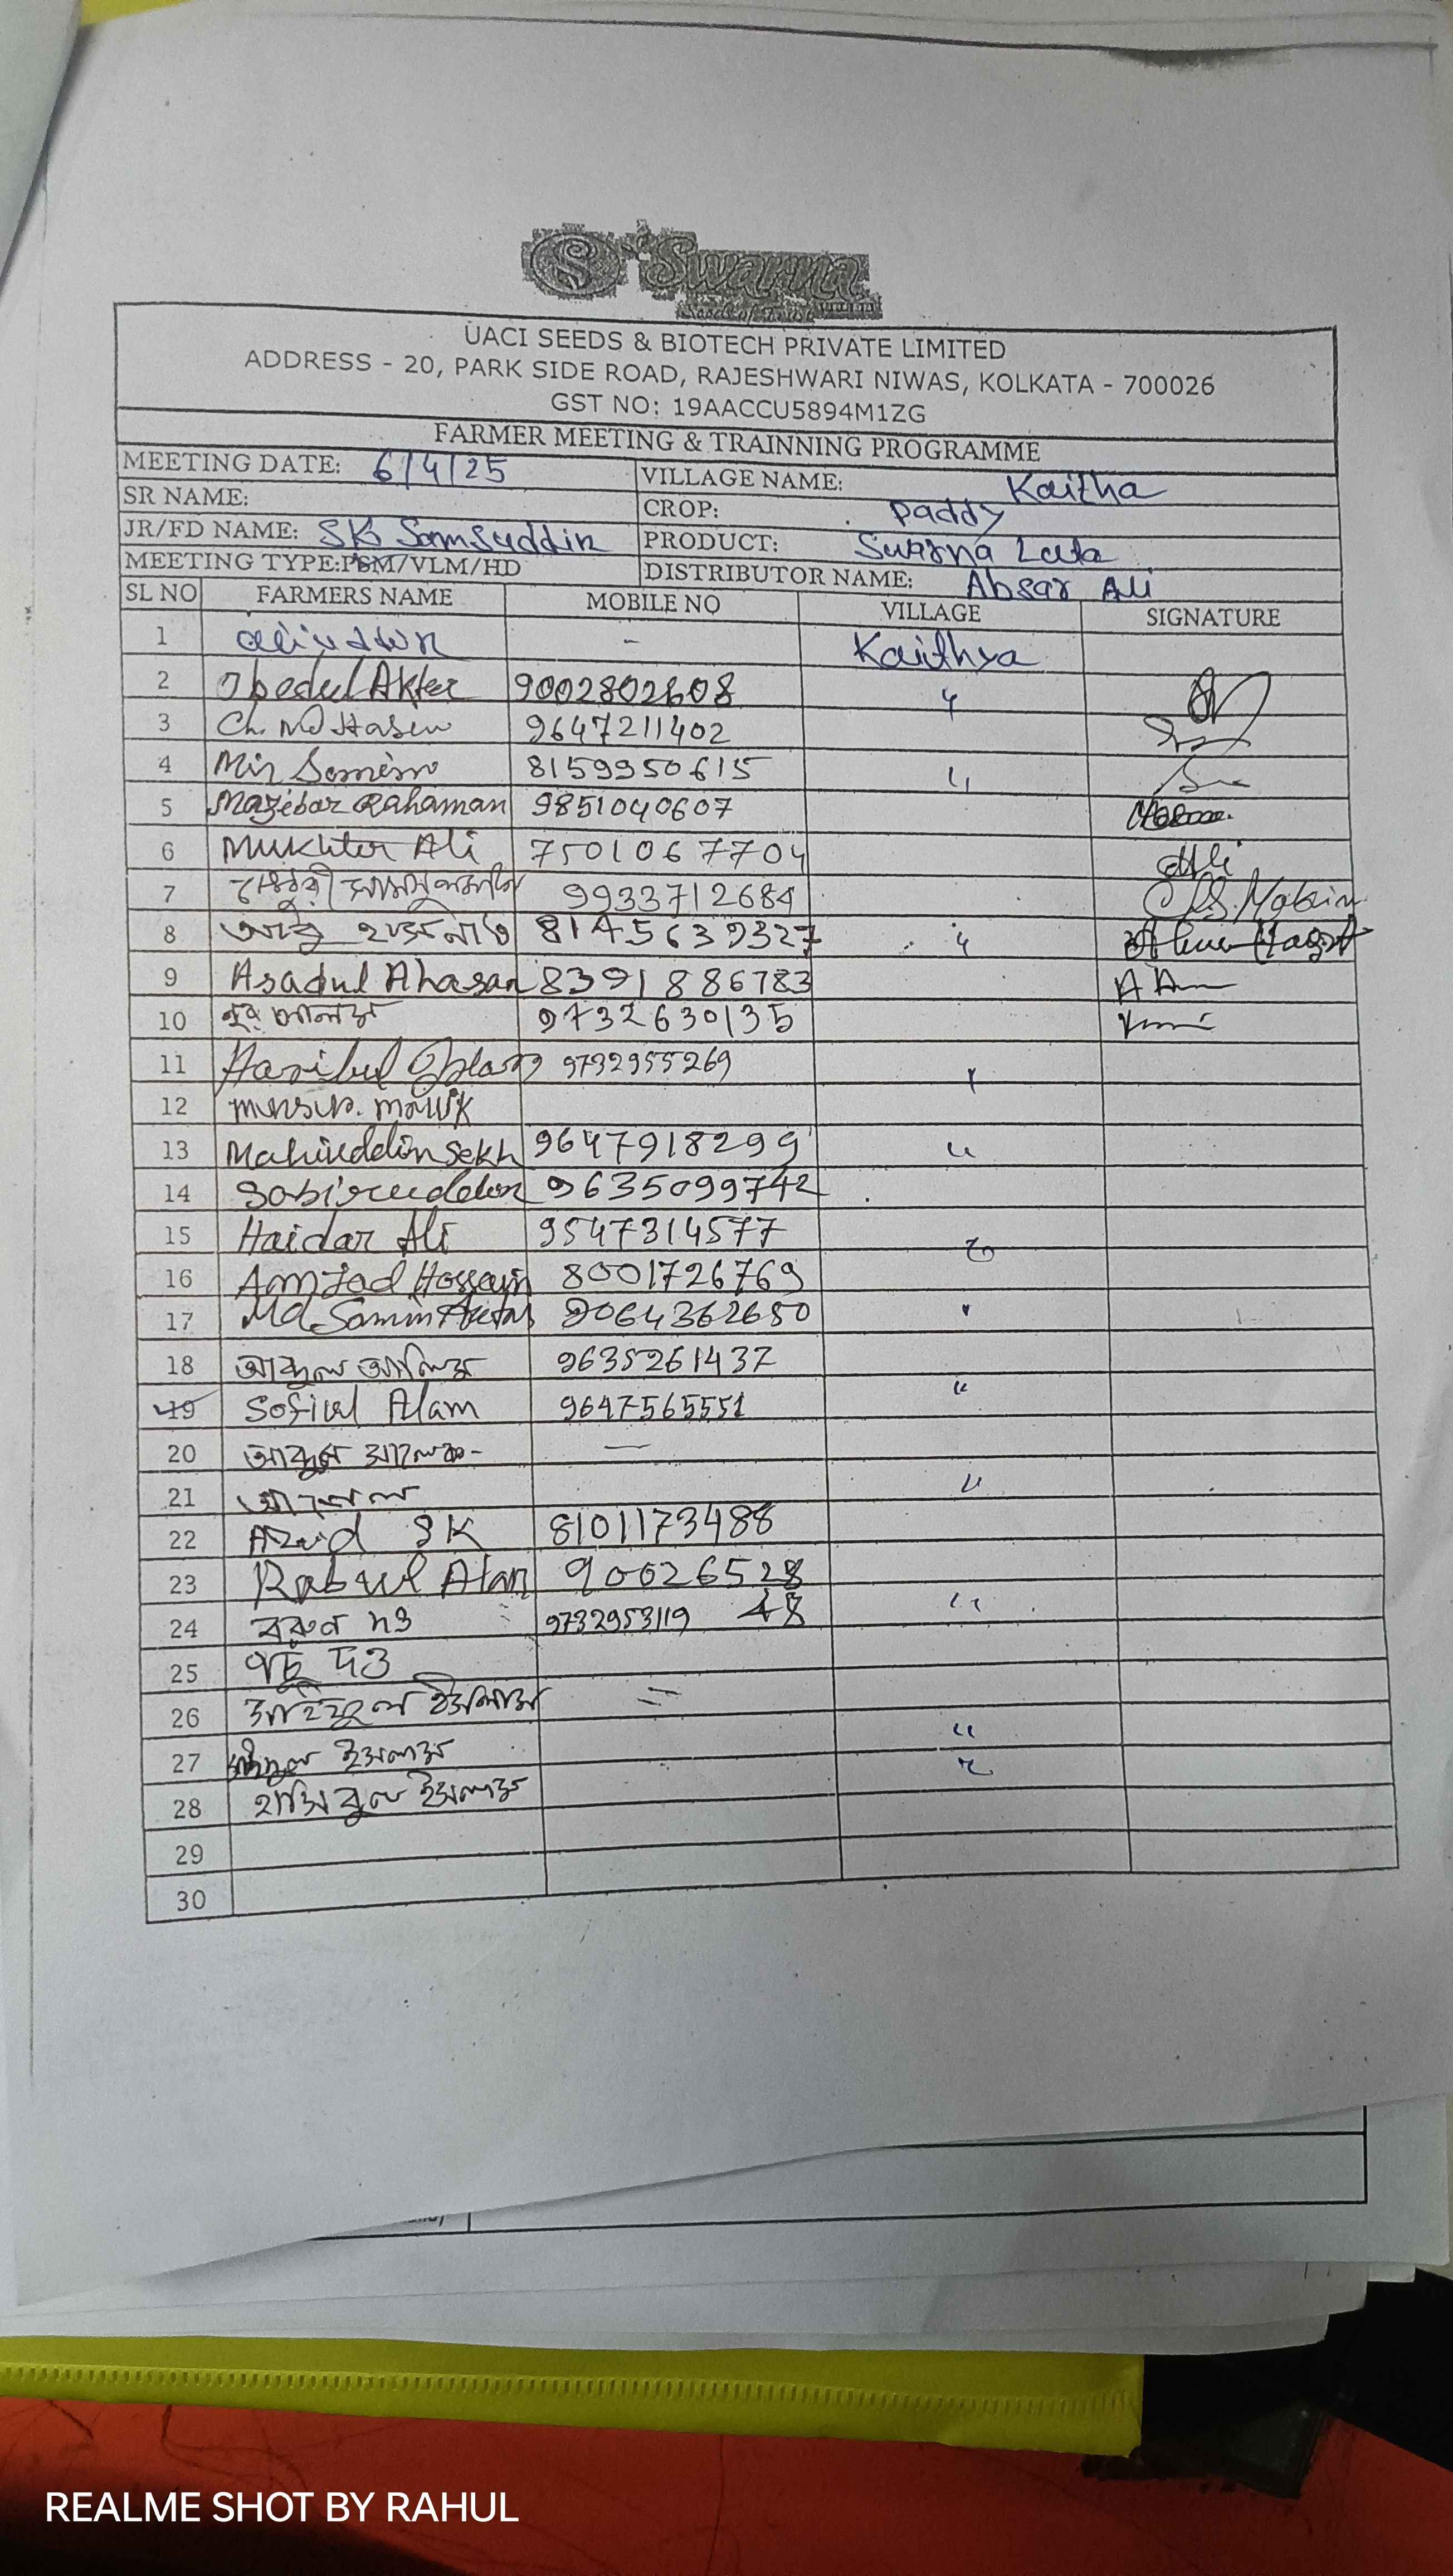 S Swarna
Seeds of Trust
UACI SEEDS & BIOTECH PRIVATE LIMITED
ADDRESS - 20, PARK SIDE ROAD, RAJESHWARI NIWAS, KOLKATA - 700026
GST NO: 19AACCU5894M1ZG
FARMER MEETING & TRAINNING PROGRAMME
MEETING DATE: 6/4/25 VILLAGE NAME: Kaitha
SR NAME: CROP: Paddy
JR/FD NAME: SK Samsuddin PRODUCT: Swarna Lata
MEETING TYPE:PSM/VLM/HD DISTRIBUTOR NAME: Absar Ali
SL NO FARMERS NAME MOBILE NO VILLAGE SIGNATURE
1 - Kaithya
2 Obedul Akter 9002802608 "
3 Ch. Md Hasen 9647211402
4 Mir Samim 8159950615 "
5 Mazibar Rahaman 9851040607
6 Mukhter Ali 7501067704 Ali
7 চৌধুরী 9933712684
8 আবু হাসনাত 8145639327 "
9 Asadul Ahasan 8391886783
10 নুর আলম 9732630135
11 Hasibul Islam 9732955269 "
12
13 Mahiuddin Sekh 9647918299 "
14 Sabiruddin 9635099742
15 Haidar Ali 9547314577
16 Amjad Hossain 8001726769
17 Md Samim Aktar 9064362680 "
18 আব্দুল আলিম 9635261437
19 Sofiul Alam 9647565551 "
20 আব্দুল মালেক - —
21 "
22 SK 8101173488
23 Rabiul Alam 90026528
48
24 বরুণ দত্ত 9732953119 "
25 পচু দত্ত
26 ইসলাম =
27 ইসলাম "
28 হাসিবুল ইসলাম
29
30
REALME SHOT BY RAHUL